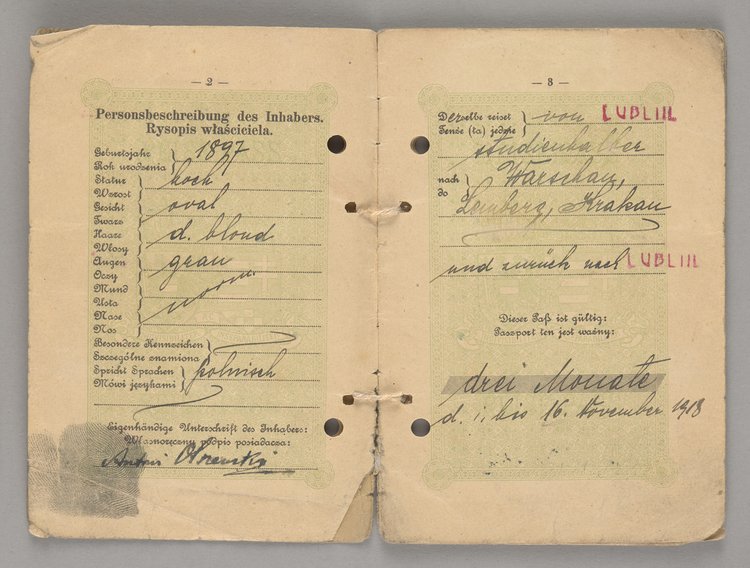 — 2 —
Personsbeschreibung des Inhabers.
Rysopis właściciela.
Geburtsjahr
Rok urodzenia
1897
Statur
Wzrost
hoch
Gesicht
Twarz
oval
Haare
Włosy
d. blond
Augen
Oczy
grau
Mund
Usta
Nase
Nos
norm.
Besondere Kennzeichen
Szczególne znamiona
Spricht Sprachen
Mówi językami
polnisch
Eigenhändige Unterschrift des Inhabers:
Własnoręczny podpis posiadacza:
Antoni
— 3 —
Derselbe reiset
Tenże (ta) jedzie
von LUBLIN
studienhalber
nach
do
Warschau,
Lemberg, Krakau
und zurück nach LUBLIN
Dieser Paß ist gültig:
Paszport ten jest ważny:
drei Monate
d. i. bis 16. November 1918